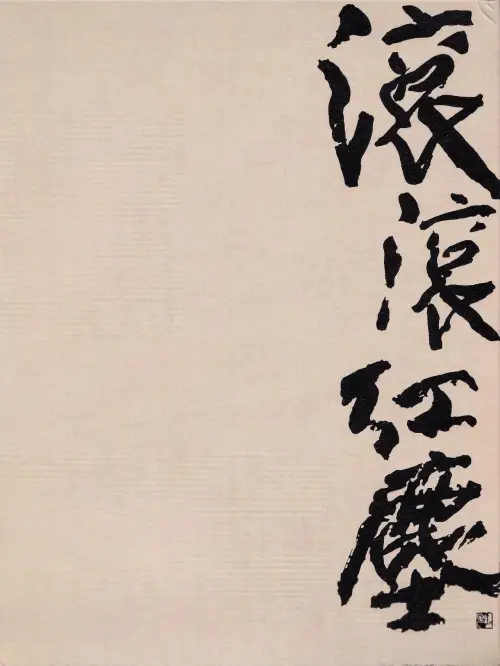 滚滚红尘